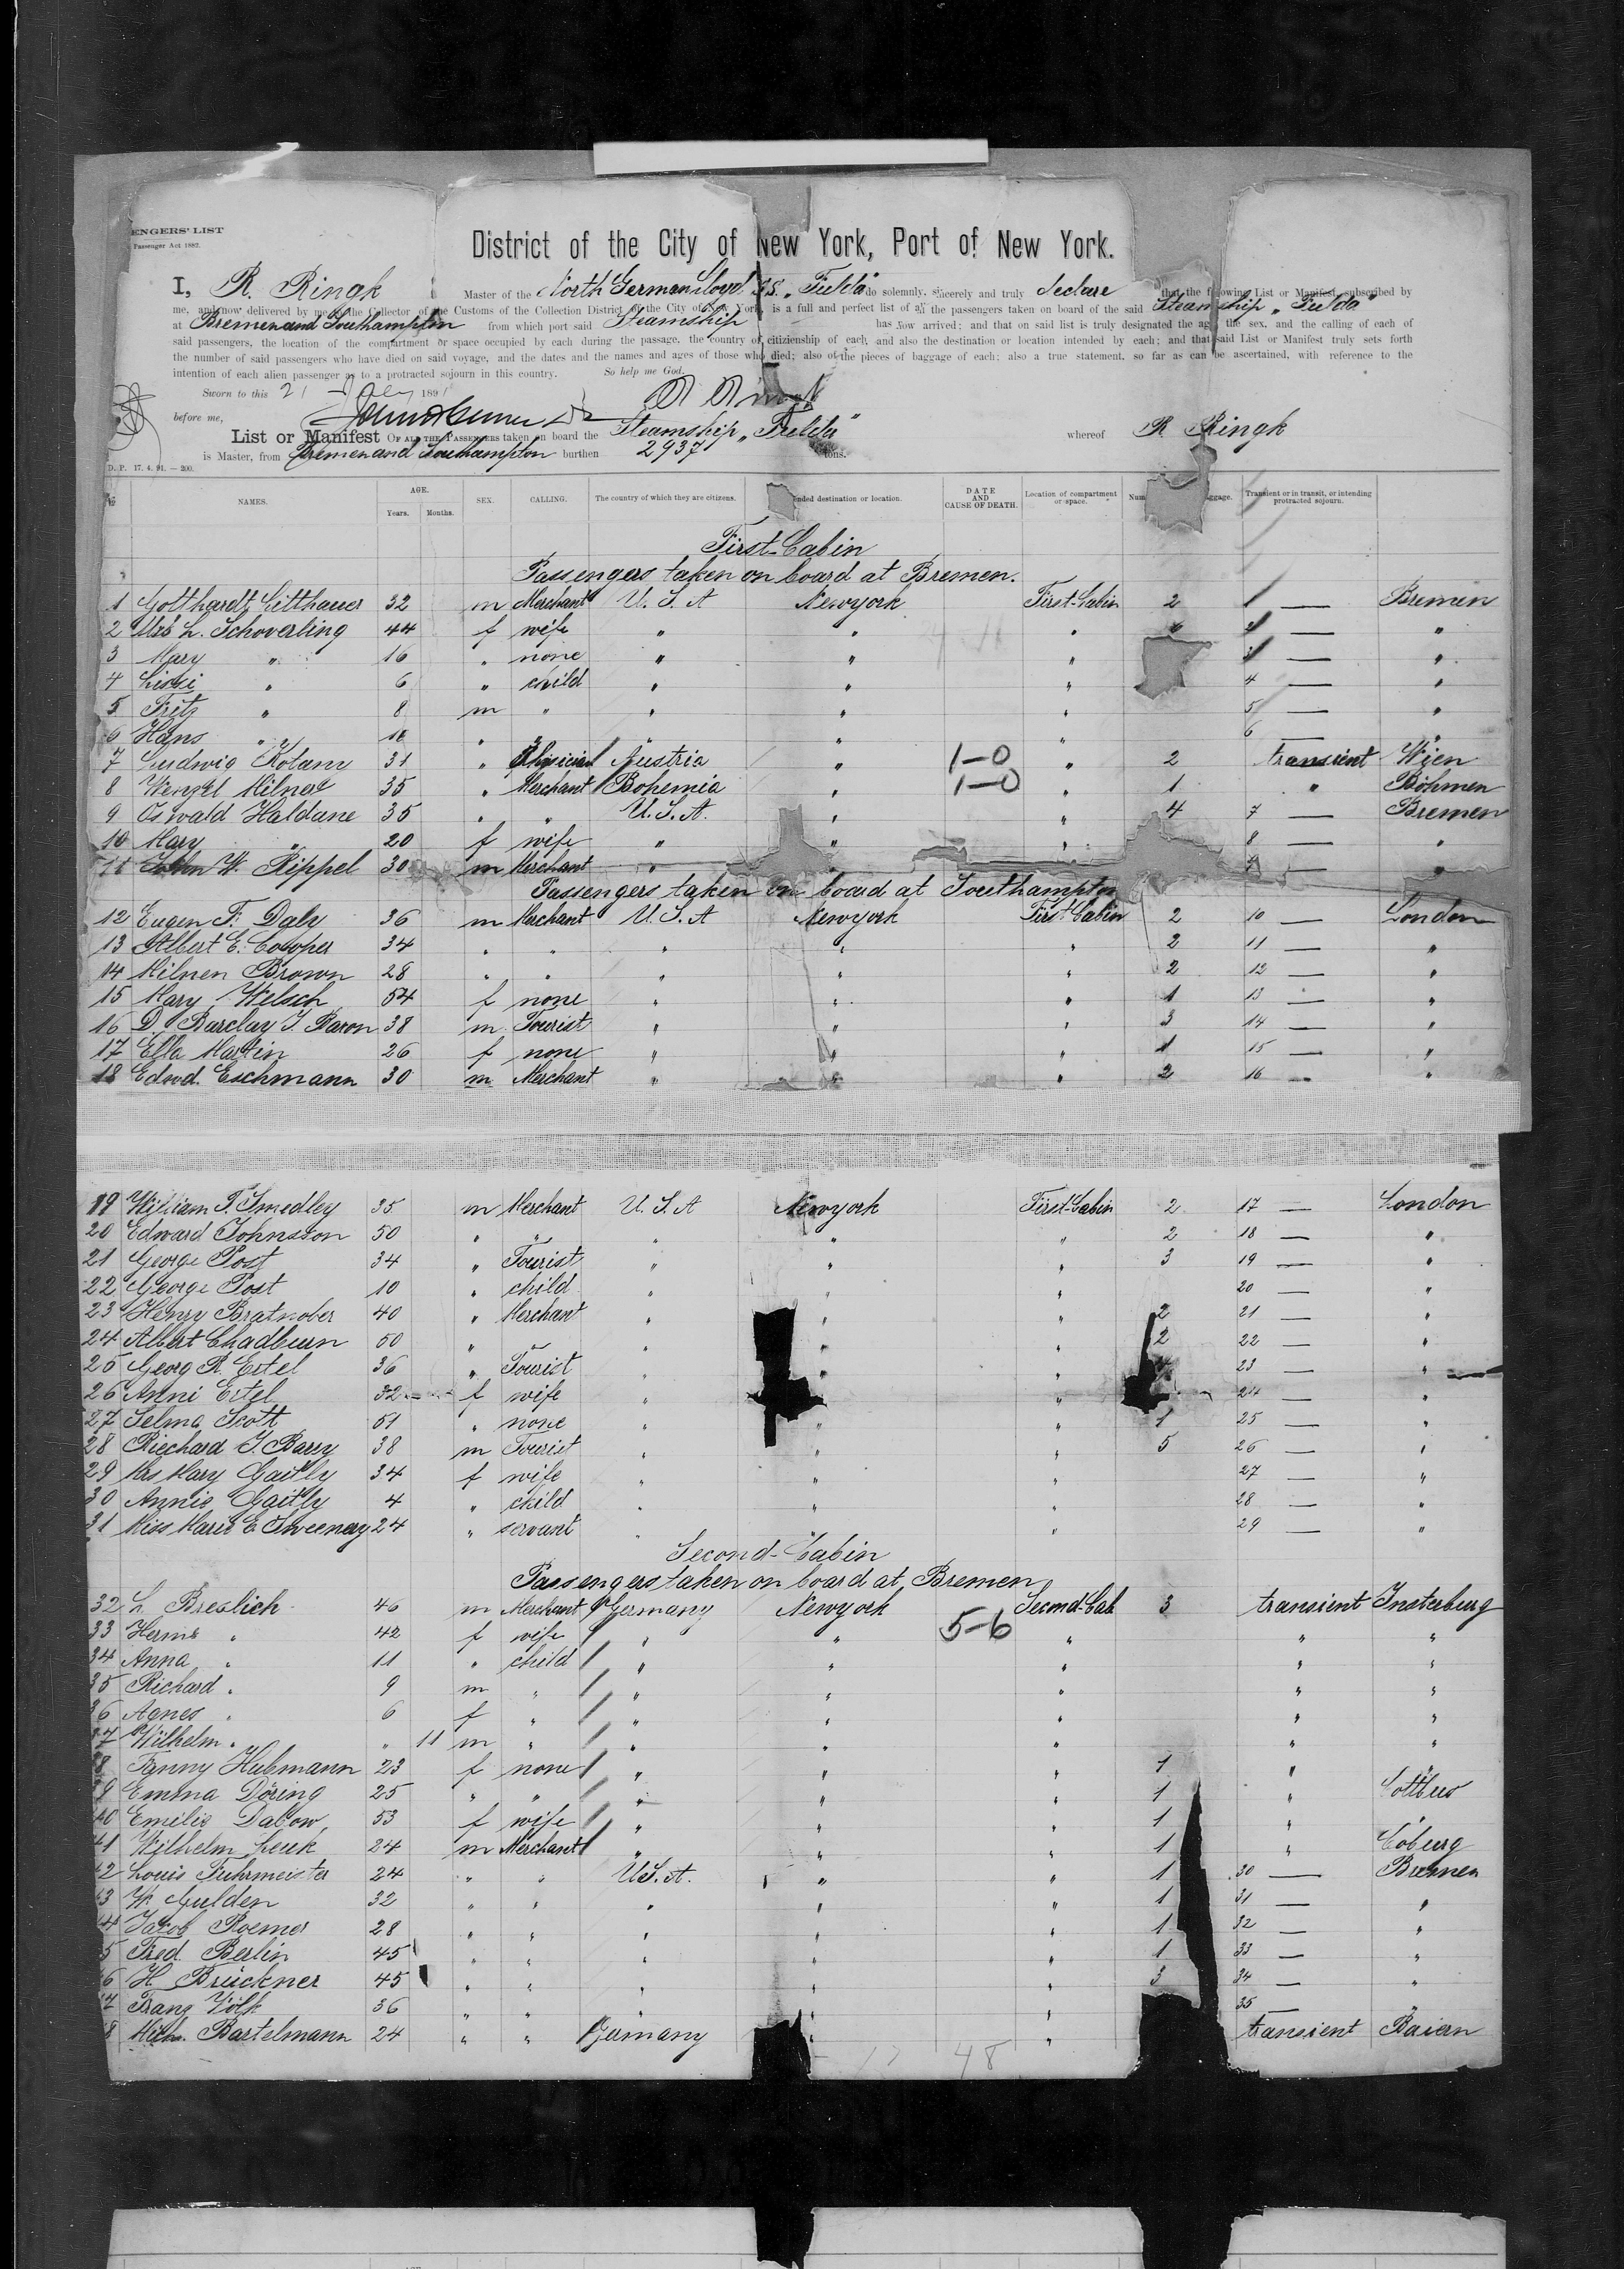 ENGERS' LIST
Passenger Act 1882.
District of the City of New York, Port of New York.
I, R. Ringk Master of the North German Lloyd S.S. „Fulda" do solemnly, sincerely and truly declare that the following List or Manifest, subscribed by
me, and now delivered by me to the Collector of the Customs of the Collection District of the City of New York, is a full and perfect list of all the passengers taken on board of the said Steamship „Fulda"
at Bremen and Southampton from which port said Steamship has now arrived; and that on said list is truly designated the age, the sex, and the calling of each of
said passengers, the location of the compartment or space occupied by each during the passage, the country of citizienship of each, and also the destination or location intended by each; and that said List or Manifest truly sets forth
the number of said passengers who have died on said voyage, and the dates and the names and ages of those who died; also of the pieces of baggage of each; also a true statement, so far as can be ascertained, with reference to the
intention of each alien passenger as to a protracted sojourn in this country. So help me God.
Sworn to this 21 189
R Ringk
before me,
List or Manifest OF ALL THE PASSENGERS taken on board the Steamship „Fulda" whereof R Ringk
is Master, from Bremen and Southampton burthen 2937 tons.
D. P. 17. 4. 91. — 200.
No NAMES. AGE. Years. Months. SEX. CALLING. The country of which they are citizens. ended destination or location. DATE AND CAUSE OF DEATH. Location of compartment or space. Num ggage. Transient or in transit, or intending protracted sojourn.
First-Cabin
Passengers taken on board at Bremen.
1 Gotthardt Litthauer 32 m Merchant U. S. A Newyork First-Cabin 2 1 — Bremen
2 Mrs L. Schoverling 44 f wife " " " " 2 — "
3 Mary " 16 " none " " " 3 — "
4 Lissi " 6 " child " " " 4 — "
5 Fritz " 8 m " " " " 5 — "
6 Hans " " " " " " 6 — "
7 Ludwig Kolany 31 " Physician Austria " 1-0 " 2 transient Wien
8 Wenzel Milner 35 " Merchant Bohemia " 1-0 " 1 " Böhmen
9 Oswald Haldane 35 " " U. S. A. " " 4 7 — Bremen
10 Mary " 20 f wife " " " 8 — "
11 John W. Rippel 30 m Merchant " 9 — "
Passengers taken on board at Southampton
12 Eugen F. Daly 36 m Merchant U. S. A Newyork First-Cabin 2 10 — London
13 Albert E. Cowper 34 " " " " " 2 11 — "
14 Milnen Brown 28 " " " " " 2 12 — "
15 Mary Welsch 54 f none " " " 1 13 — "
16 D. Barclay J. Baron 38 m Tourist " " " 3 14 — "
17 Ella Martin 26 f none " " " 1 15 — "
18 Edwd. Eschmann 30 m Merchant " " " 2 16 — "
19 William T. Smedley 35 m Merchant U. S. A Newyork First-Cabin 2 17 — London
20 Edward Johnston 50 " " " " " 2 18 — "
21 George Post 34 " Tourist " " " 3 19 — "
22 George Post 10 " child " " " 20 — "
23 Henry Bratnober 40 " Merchant " " " 2 21 — "
24 Albert Chadburn 50 " " " " " 2 22 — "
25 Georg R. Ertel 36 " Tourist " " " 23 — "
26 Anni Ertel 32 f wife " " 24 — "
27 Selma Scott 51 " none " " " 1 25 — "
28 Riechard J. Barry 38 m Tourist " " " 5 26 — "
29 Mrs Mary Gaitly 34 f wife " " " 27 — "
30 Annie Gaitly 4 " child " " " 28 — "
31 Miss Marie E Sweeney 24 " servant " " " 29 — "
Second-Cabin
Passengers taken on board at Bremen
32 L. Breslich 46 m Merchant Germany Newyork Second-Cab 3 transient Insterburg
33 Herma " 42 f wife " " 5-6 " " "
34 Anna " 11 " child " " " " "
35 Richard " 9 m " " " " " "
36 Agnes " 6 f " " " " " "
37 Wilhelm " " 11 m " " " " " "
38 Fanny Hubmann 23 f none " " " 1 " "
39 Emma Döring 25 " " " " " 1 " Cottbus
40 Emilie Dabow 53 f wife " " " 1 " "
41 Wilhelm Leuk 24 m Merchant " " " 1 " Coburg
42 Louis Fuhrmeister 24 " " U.S.A. " " 1 30 — Bremen
43 W. Gulden 32 " " " " " 1 31 — "
44 Jacob Roemer 28 " " " " " 1 32 — "
5 Fred. Berlin 45 " " " " " 1 33 — "
6 H. Brückner 45 " " " " " 3 34 — "
7 Franz Völk 36 " " " " " 35 — "
8 Mich. Bartelmann 24 " " Germany " " transient Baiern
48